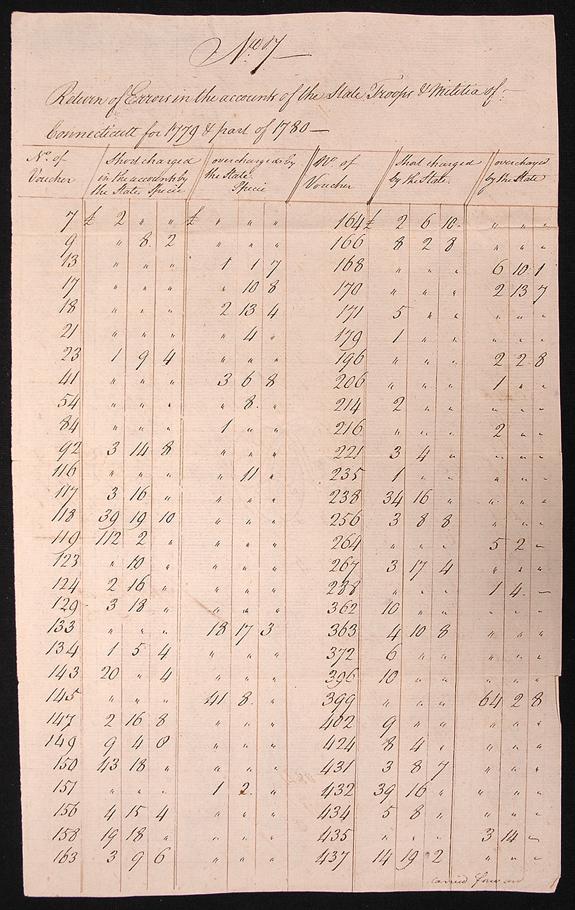 No. 17
Return of Errors in the accounts of the State Troops & Militia of
Connecticutt for 1779 & part of 1780—
No. of Voucher | Short charged in the accounts by the State, Specie | overcharged by the State Specie | No. of Voucher | Short charged by the State. | overcharged by the State
7 | £ 2 " " | £ " " " | 164 | £ 2 6 10 | " " "
9 | " 8 2 | " " " | 166 | 8 2 8 | " " "
13 | " " " | 1 1 7 | 168 | " " " | 6 10 1
17 | " " " | " 10 8 | 170 | " " " | 2 13 7
18 | " " " | 2 13 4 | 171 | 5 " " | " " "
21 | " " " | " 4 " | 179 | 1 " " | " " "
23 | 1 9 4 | " " " | 196 | " " " | 2 2 8
41 | " " " | 3 6 8 | 206 | " " " | 1 " "
54 | " " " | " 8 " | 214 | 2 " " | " " "
84 | " " " | 1 " " | 216 | " " " | 2 " "
92 | 3 14 8 | " " " | 221 | 3 4 " | " " "
116 | " " " | " 11 " | 235 | 1 " " | " " "
117 | 3 16 " | " " " | 238 | 34 16 " | " " "
118 | 39 19 10 | " " " | 256 | 3 8 8 | " " "
119 | 112 2 " | " " " | 264 | " " " | 5 2 –
123 | " 10 " | " " " | 267 | 3 17 4 | " " "
124 | 2 16 " | " " " | 288 | " " " | 1 4 –
129 | 3 18 " | " " " | 362 | 10 " " | " " "
133 | " " " | 18 17 3 | 363 | 4 10 8 | " " "
134 | 1 5 4 | " " " | 372 | 6 " " | " " "
143 | 20 " 4 | " " " | 396 | 10 " " | " " "
145 | " " " | 41 8 " | 399 | " " " | 64 2 8
147 | 2 16 8 | " " " | 402 | 9 " " | " " "
149 | 9 4 8 | " " " | 424 | 8 4 " | " " "
150 | 43 18 " | " " " | 431 | 3 8 7 | " " "
151 | " " " | 1 2 " | 432 | 39 16 " | " " "
156 | 4 15 4 | " " " | 434 | 5 8 " | " " "
158 | 19 18 " | " " " | 435 | " " " | 3 14 –
163 | 3 9 6 | " " " | 437 | 14 19 2 | " " "
carried forward